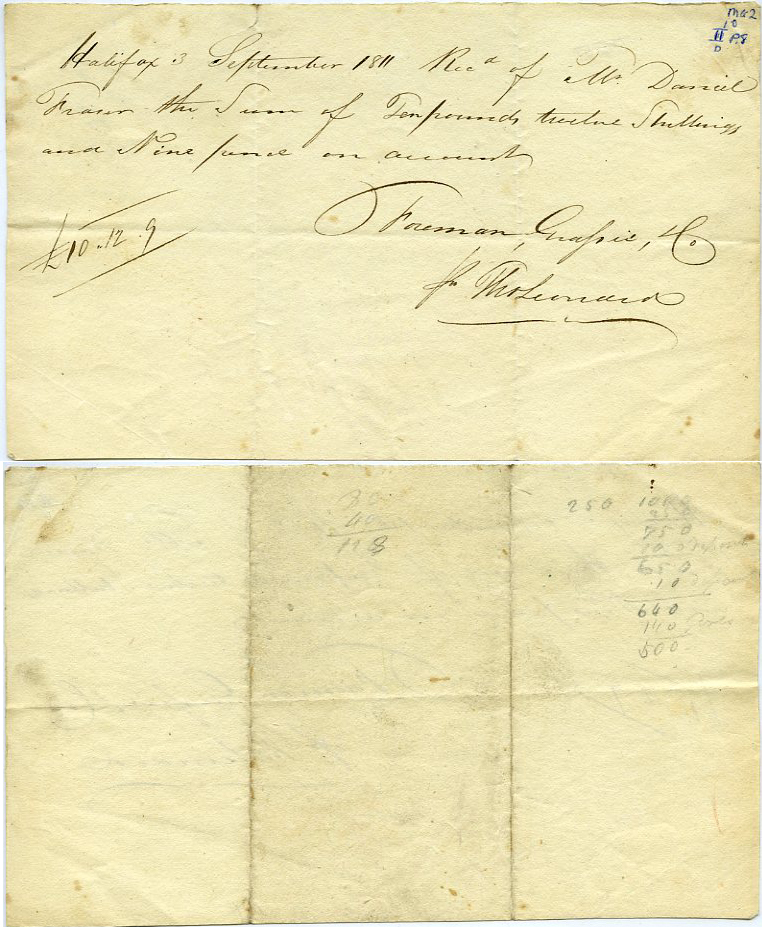 MG2
10
II P.8
D
Halifax 3 September 1811 Recd of Mr. Daniel
Fraser the Sum of Ten pounds twelve Shillings
and Nine pence on account
£10..12.9
Foreman, Grassie, & Co
Thos Leonard
80
40
118
250
750
10
650
10
640
140
500